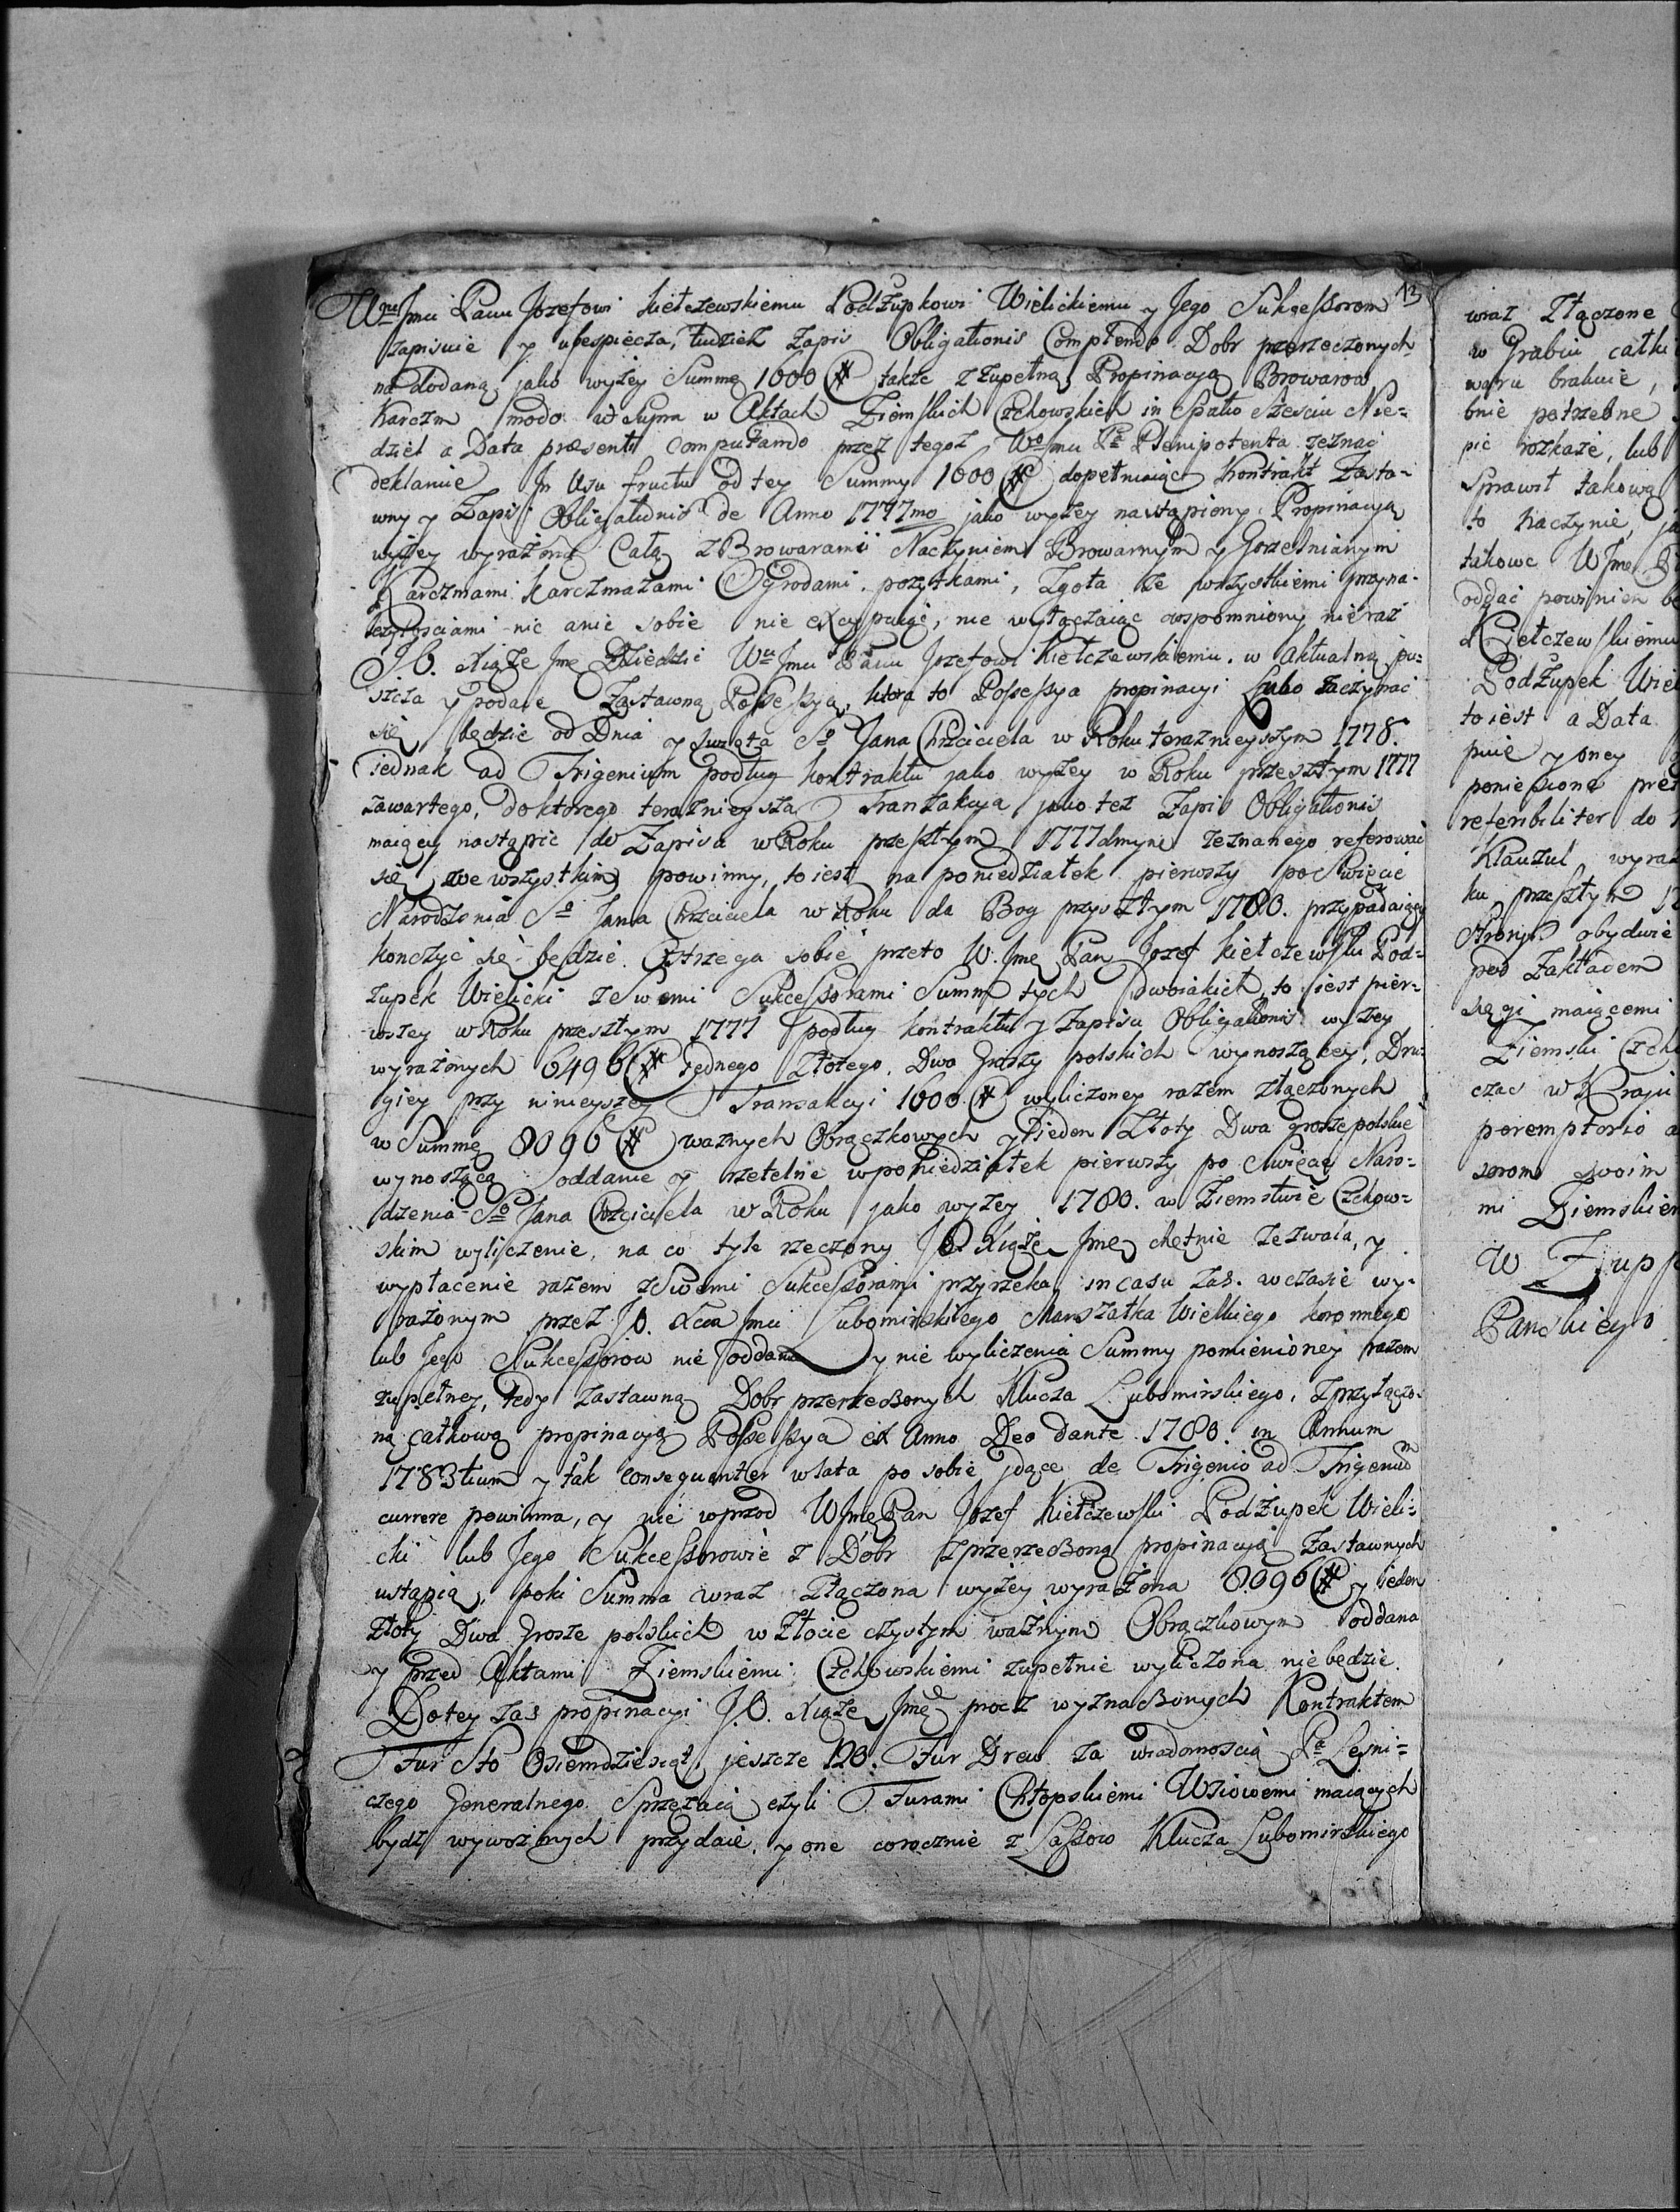 13
Wne Jmci Panu Jozefowi Kiełczewskiemu Podżupkowi Wielickiemu y Jego Sukcessorom
zapisuie y ubespiecza, tudzież zapis Obligationis Complendo Dobr przerzeczonych
na dodaną jako wyżey Summę 1600 # także z zupełną Propinacyą Browarow
Karczm modo ut supra w Aktach Ziemskich Czchowskich in spatio sześciu Nie-
dziel a Data præsenti computando przez tegoż Wo Jmci Pa Plenipotenta zeznać
deklaruie In Usu fructu od tey Summy 1600 # dopełniaiąc Kontrakt Zasta-
wny y Zapis Obligationis de Anno 1777mo jako wyżey nastąpiony Propinacyą
wyżey wyrażoną Całą z Browarami Naczyniem Browarnym y Gorzelnianym
Karczmami Karczmarzami Ogrodami, pożytkami, Zgoła ze wszystkiemi przyna-
leżytościami nic a nic sobie nie excypuiąc, nie wyłączaiąc wspomniony nie raz
J.O. Xiąże Jmć Dziedzic Wu Jmci Panu Jozefowi Kiełczewskiemu w aktualną pu-
szcza y podaie Zastawną Possessyą, ktora to Possessya propinacyi Lubo zaczynać
się będzie od Dnia y Święta So Jana Chrzciciela w Roku teraznieyszym 1778.
iednak ad Trigenium podług kontraktu jako wyżey w Roku przeszłym 1777
zawartego, do ktorego teraznieysza Tranzakcya jako też Zapis Obligationis
maiący nastąpić do Zapisu w Roku przeszłym 1777dmym zeznanego referować
się we wszystkim powinny, to iest na poniedziałek pierwszy po Swięcie
Narodzenia So Jana Chrzciciela w Roku da Bog przyszłym 1780. przypadaiący
konczyć się będzie. Ostrzega sobie przeto W. Jmć Pan Jozef Kiełczewski Pod-
żupek Wielicki ze Swemi Sukcessorami Summ tych Dwoiakich, to jest pier-
wszey w Roku przeszłym 1777 podług kontraktu y Zapisu Obligationis wyżey
wyrażonych 6496 # Jednego Złotego, Dwa Groszy polskich wynoszącey, Dru-
giey przy ninieyszey Transakcyi 1600 # wyliczoney razem złączonych
w Summę 8096 # ważnych Obrączkowych y Jeden Złoty Dwa grosze polskie
wynoszącą oddanie y rzetelne w poniedziałek pierwszy po Swięcie Naro-
dzenia So Jana Chrzciciela w Roku jako wyżey 1780. w Ziemstwie Czchow-
skim wyliczenie, na co tyle rzeczony J.O. Xiąże Jmć chętnie zezwala, y
wypłacenie razem z Swemi Sukcessorami przyrzeka, in casu zaś w czasie wy-
rażonym przez J.O. Xcia Jmci Lubomirskiego Marszałka Wielkiego koronnego
lub Jego Sukcessorow nie oddana y nie wyliczenia Summy pomienioney razem
zupełney, tedy zastawną Dobr przerzeczonych Klucza Lubomirskiego, z przyłączo-
ną całkową propinacyą Possessya ex Anno Deo dante 1780. in Annum
1783tium y tak consequenter w lata po sobie jdące de Trigenio ad Trigenium
currere powinna, y nie wprzod WJmć Pan Jozef Kiełczewski Podżupek Wieli-
cki lub Jego Sukcessorowie z Dobr z przerzeczoną propinacyą Zastawnych
ustąpią, poki Summa wraz złączona wyżey wyrażona 8096 # y ieden
złoty Dwa grosze polskich w złocie czystym ważnym Obrączkowym oddana
y przed Aktami Ziemskiemi Czchowskiemi zupełnie wyliczona nie będzie.
Do tey zas propinacyi J.O. Xiąże Jmć procz wyznaczonych Kontraktem
Fur Sto Osiemdziesiąt, jeszcze 120. Fur Drew za wiadomością Pa Lesni-
czego Generalnego Sprzężaią czyli Furami Chłopskiemi Wsiowemi maiących
bydz wywożonych przydaie, y one corocznie z Lassow Klucza Lubomirskiego
wraz złączone
w Grabiu całki
waru brakuie,
bnie potrzebne
pić rozkaże, lub
Sprawił takową
to Naczynie, ja
takowe WJmć
oddać powinien
Kiełczewskiemu
Podżupek Wiel
to iest a Data
puie y oney
poniesione pret
referibiliter do
Klauzul wyraż
ku przeszłym 17
Strony obydwie
pod Zakładem
sięgi maiącemi
Ziemski Czch
czas w Kraju
peremptorio a
sorom swoim
mi Ziemskiem
W Żupp
Panskiego